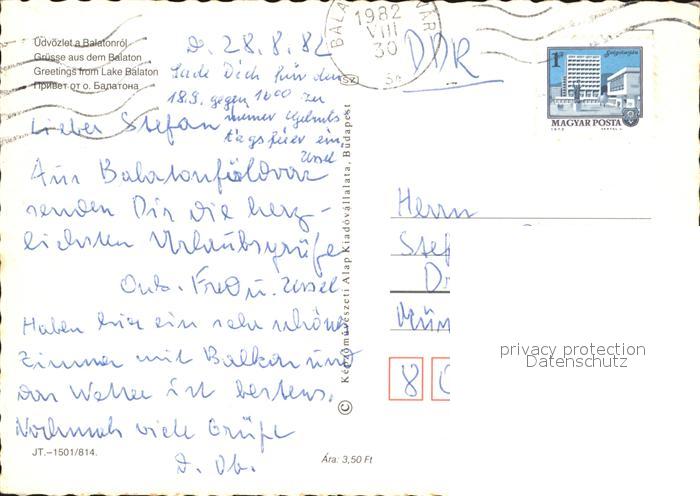 Üdvözlet a Balatonról
Grüsse aus dem Balaton
Greetings from Lake Balaton
Привет от о. Балатона
D. 28.8.82
Lade Dich für den
18.9. gegen 1000 zu
meiner Geburts
tagsfeier ein
Ursel
Lieber Stefan
Aus Balatonföldvar
senden Dir die herz-
lichsten Urlaubsgrüße
Onk. Fred u. Ursel
Haben hier ein sehr schönes
Zimmer mit Balkon und
das Wetter ist bestens.
Nochmals viele Grüße
D. Ob.
JT.–1501/814.
Ára: 3,50 Ft
© Képzőművészeti Alap Kiadóvállalata, Budapest
1982
VIII
30
DDR
1 Ft
Salgótarján
MAGYAR POSTA
1972
Herrn
8
privacy protection
Datenschutz